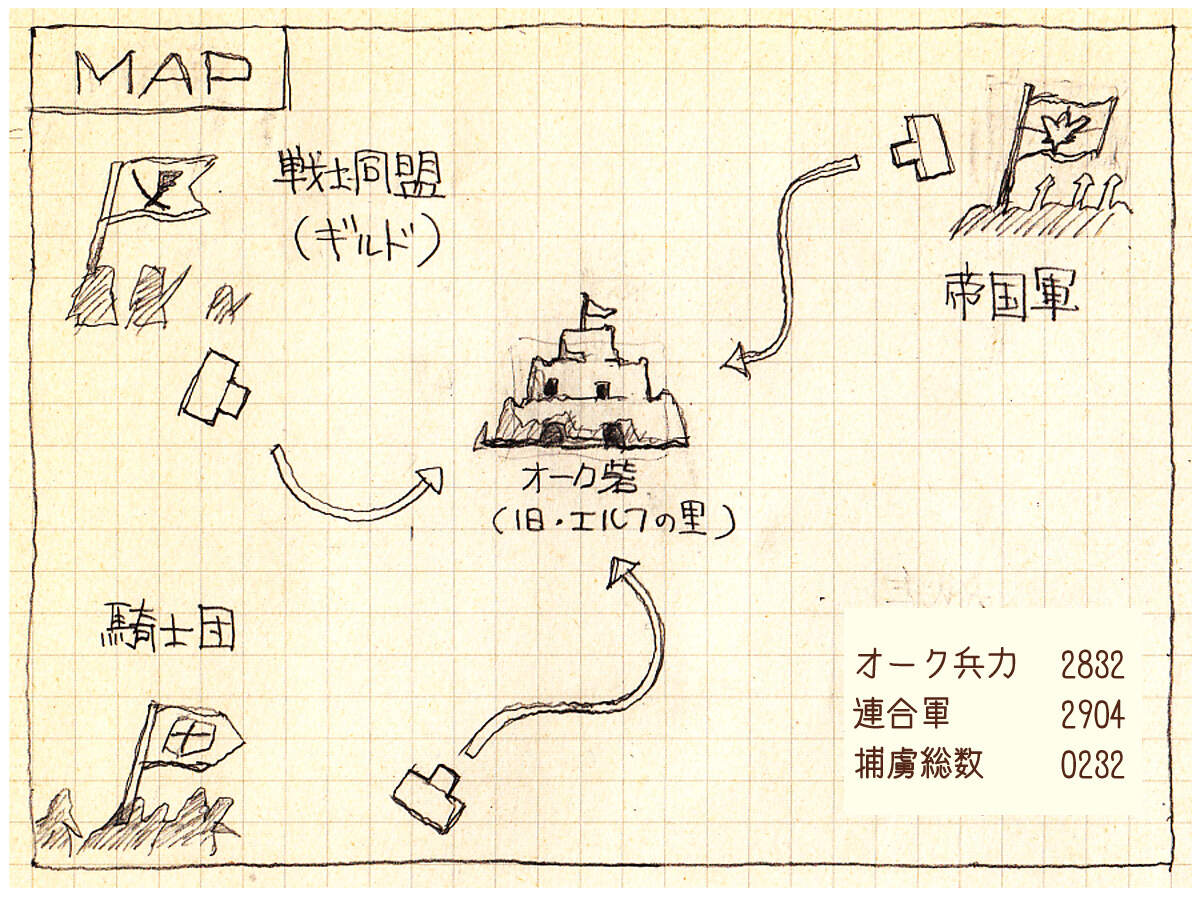 MAP
戦士同盟
(ギルド)
帝国軍
オーク砦
(旧・エルフの里)
騎士団
オーク兵力 2832
連合軍 2904
捕虜総数 0232